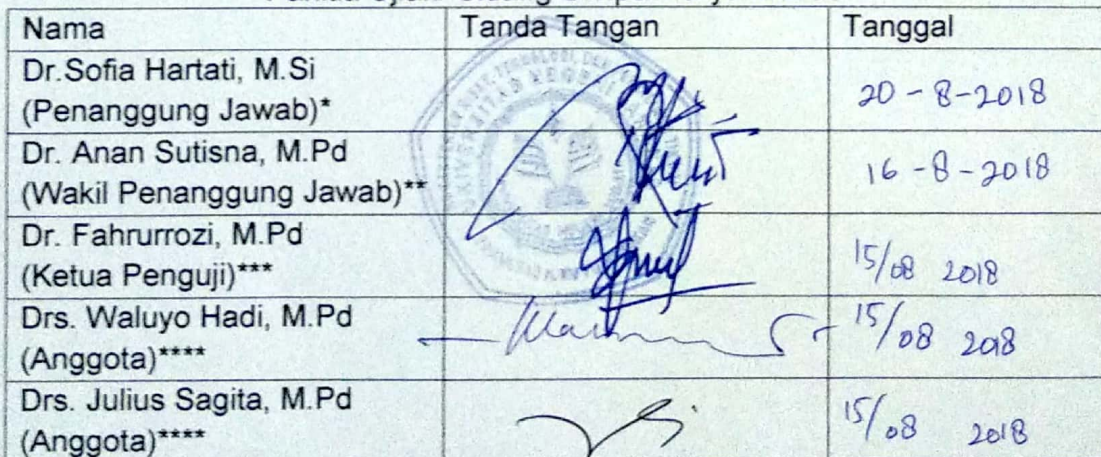 Nama Tanda Tangan Tanggal
Dr.Sofia Hartati, M.Si
(Penanggung Jawab)*
20-8-2018
Dr. Anan Sutisna, M.Pd
(Wakil Penanggung Jawab)**
16-8-2018
Dr. Fahrurrozi, M.Pd
(Ketua Penguji)***
15/08 2018
Drs. Waluyo Hadi, M.Pd
(Anggota)****
15/08 2018
Drs. Julius Sagita, M.Pd
(Anggota)****
15/08 2018
UNIVERSITAS NEGERI